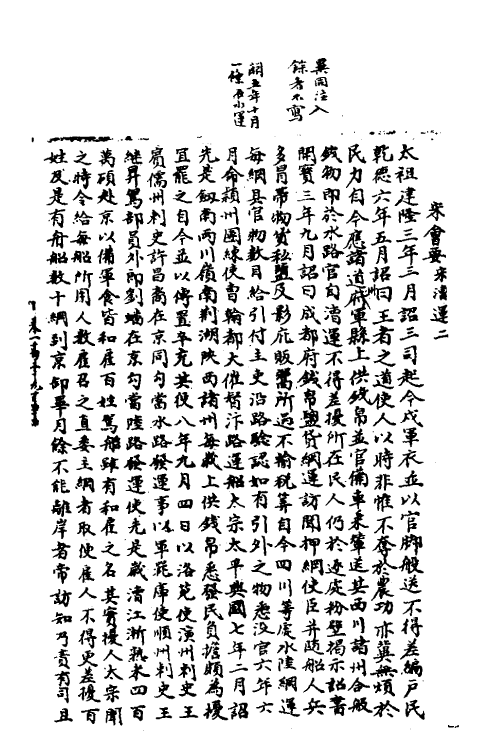 宋會要宋漕運二
太祖建隆三年三月詔三司起今戍軍衣並以官脚般送不得差編戶民
乾德六年五月詔曰王者之道使人以時非惟不奪於農功亦冀無煩於
民力自今應諸道府州軍縣上供錢帛並官備車乘輦送其西川諸州合般
錢物即於水路官自漕運不得差擾所在民人仍於逐處粉壁揭示詔書
開寶三年九月詔曰成都府錢帛鹽貨綱運訪聞押綱使臣并隨船人兵
多冒帶物貨私鹽及影庇販鬻所過不輸稅算自今四川等處水陸綱運
每綱具官物數目給引付主吏沿路驗認如有引外之物悉沒官六年六
月命潁州團練使曹翰都大催督汴路運船太宗太平興國七年二月詔
先是劍南兩川嶺南荆湖陝西諸州每歲上供錢帛悉發民負擔頗為擾
宜罷之自今並以傳置卒充其役八年九月四日以洛苑使演州刺史王
賓儒州刺史許昌裔在京同勾當水路發運事以軍器庫使順州刺史王
繼昇駕部員外郎劉蟠在京勾當陸路發運使先是歲漕江浙熟米四百
萬碩赴京以備軍食皆和雇百姓駕船雖有和雇之名其實擾人太宗聞
之時令給每船所用人數雇召之直委主綱者取便雇人不得更差擾百
姓及是有舟船數十綱到京卸畢月餘不能離岸者常訪知乃責有司且
異同注入
餘者不寫
開五年十月